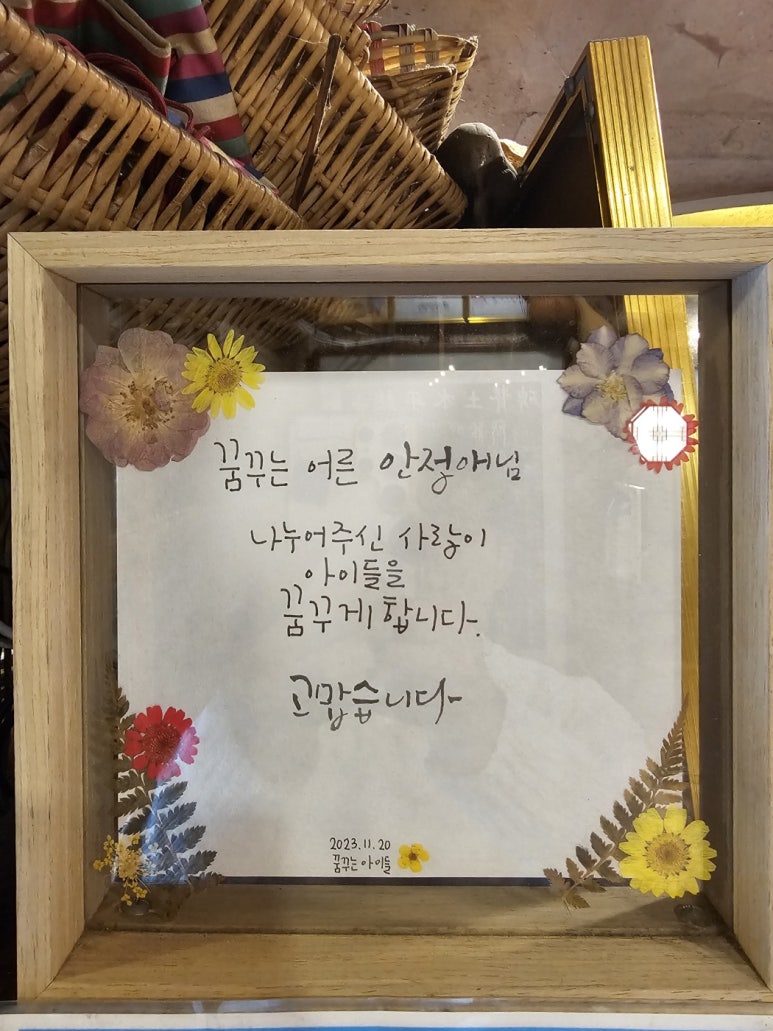 꿈꾸는 어른 안정애님
나누어주신 사랑이
아이들을
꿈꾸게 합니다.
고맙습니다
2023.11.20
꿈꾸는 아이들